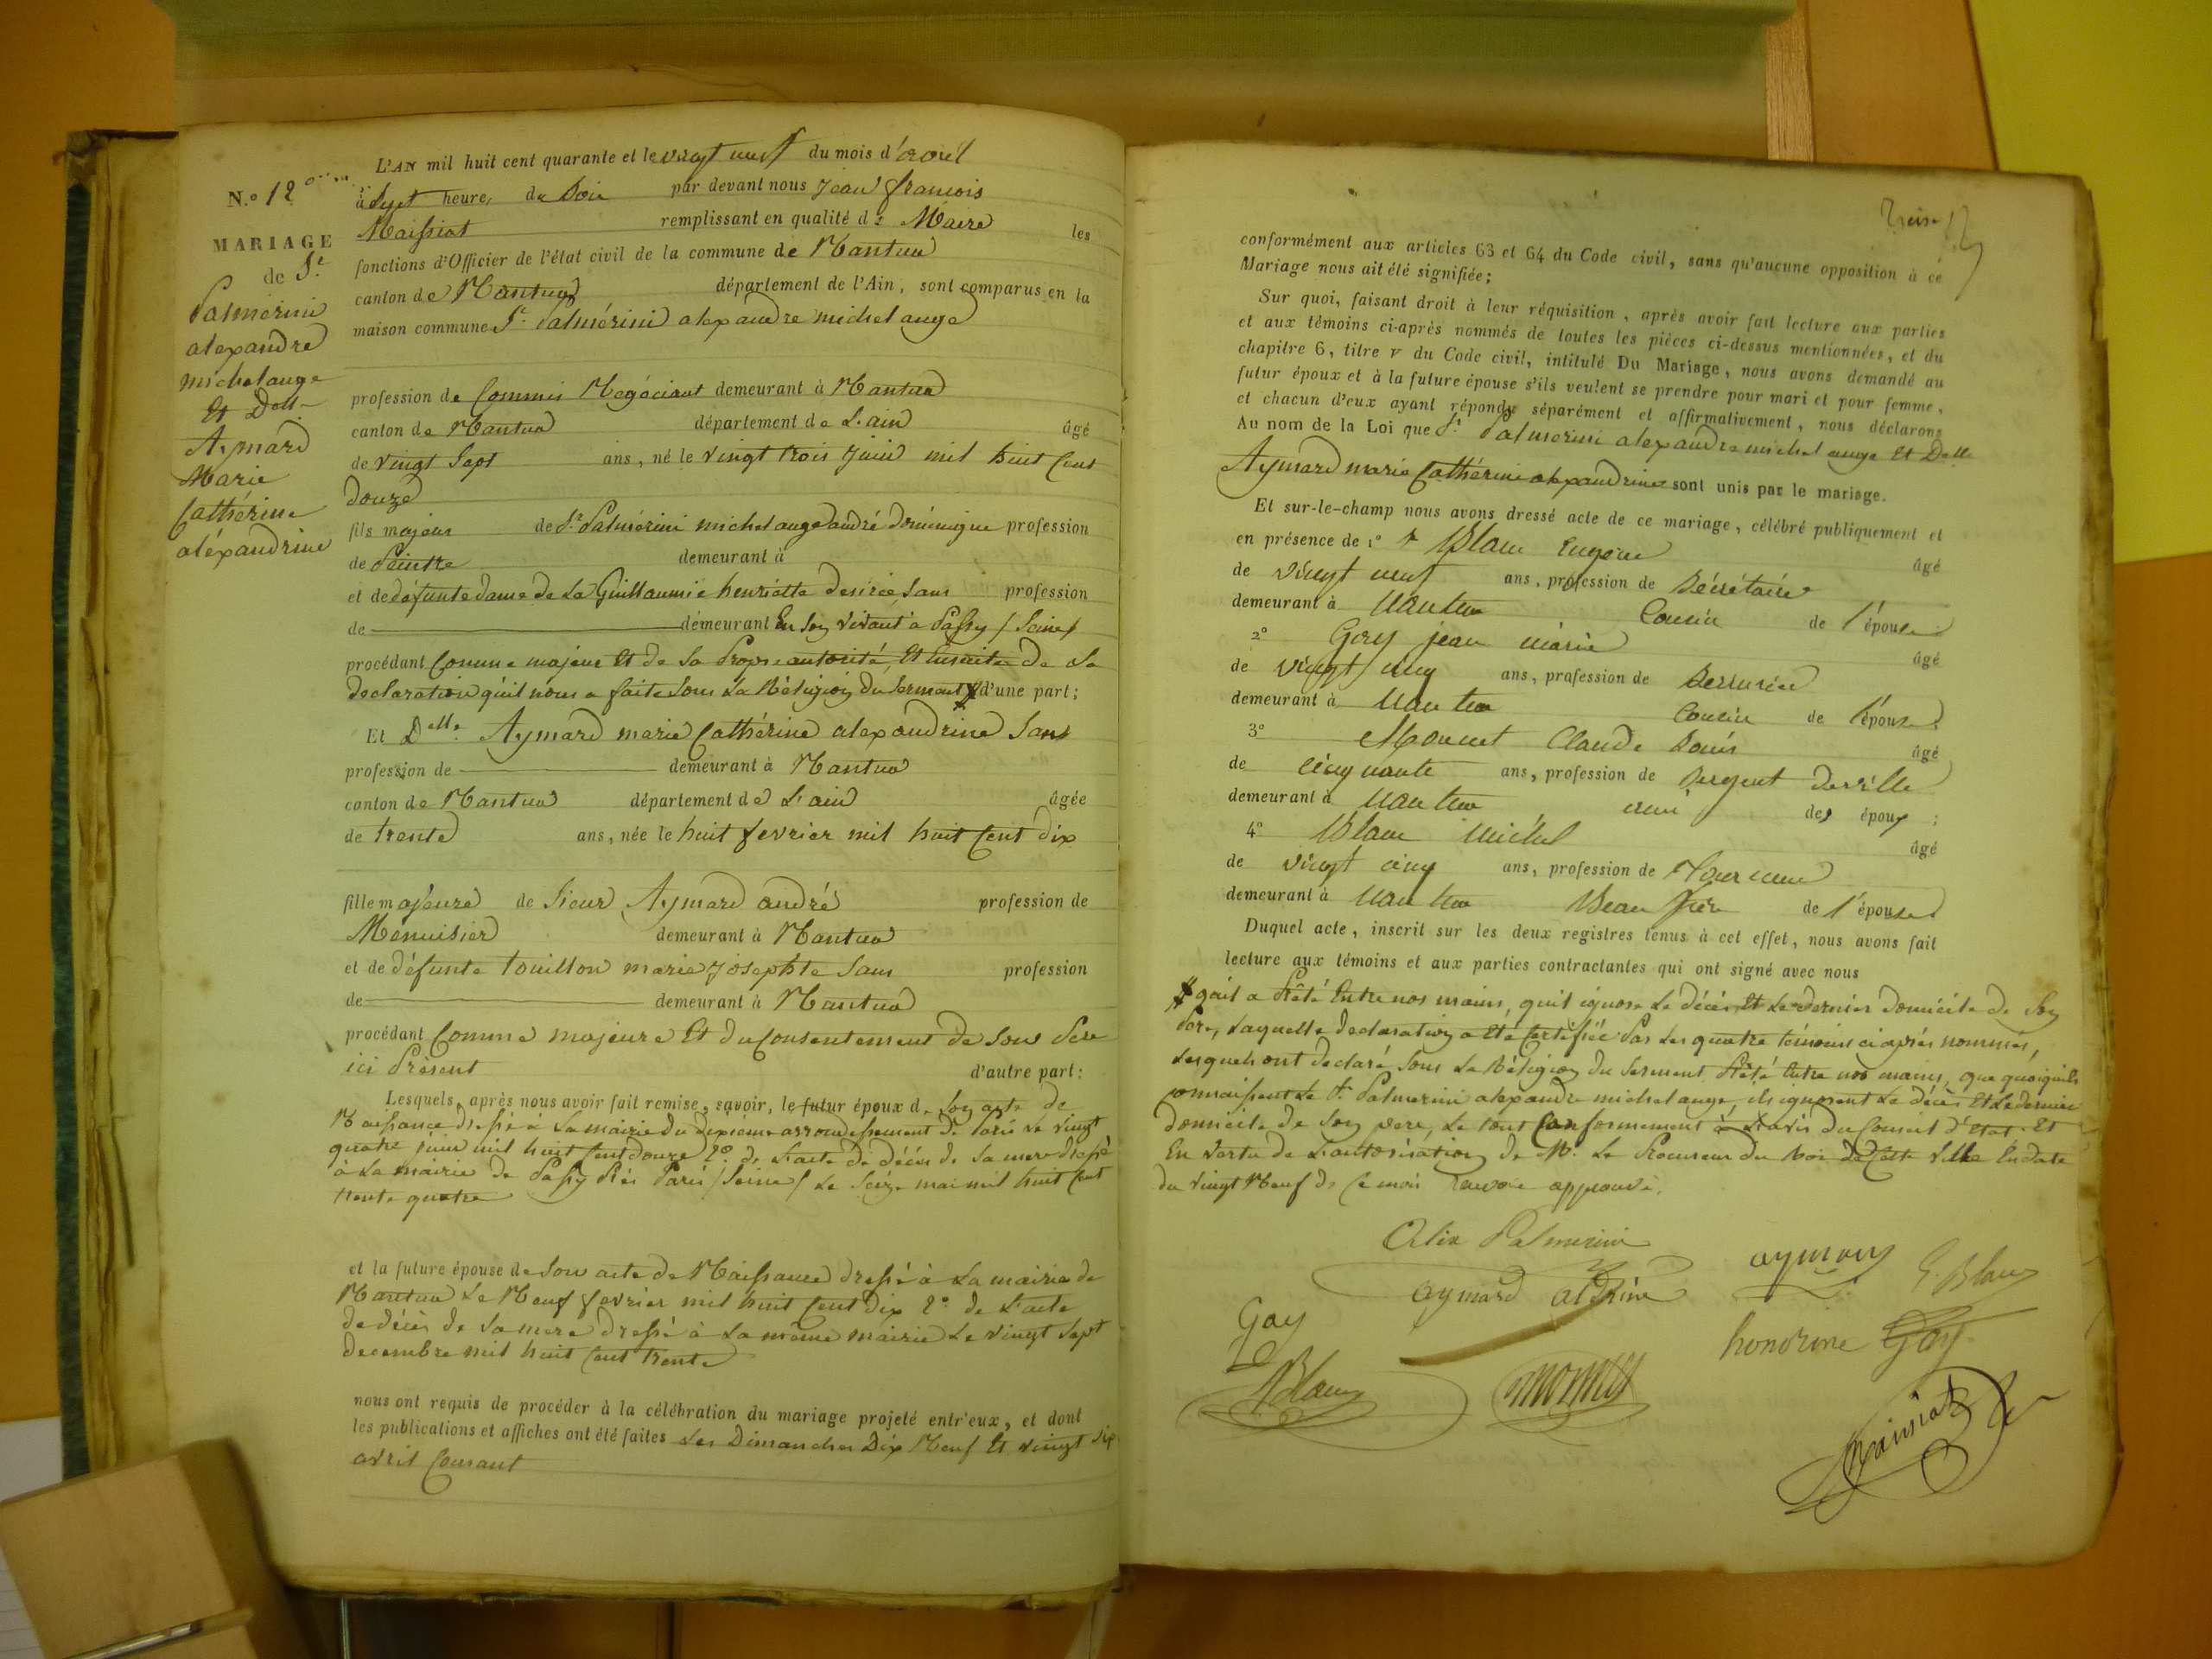 N.º 12
MARIAGE
de Sr
Palmérini
alexandre
michelange
Et Delle
Aymard
Marie
Cathérine
aléxandrine
L'AN mil huit cent quarante et le vingt neuf du mois d'avril
à Sept heure, du Soir par devant nous Jean francois
Maissiat remplissant en qualité de Maire les
fonctions d'Officier de l'état civil de la commune de Nantua
canton de Nantua département de l'Ain, sont comparus en la
maison commune Sr. Palmérini alexandre michel ange
profession de Commis Négociant demeurant à Nantua
canton de Nantua département de L'ain âgé
de vingt Sept ans, né le vingt trois juin mil huit Cent
douze
fils majeur de Sr. Palmérini michel ange andré dominique profession
de Peintre demeurant à
et de défunte dame De La Guillaumie henriette desirée, Sans profession
de demeurant En Son Vivant à Passy / Seine /
procédant Comme majeur Et de Sa Propre autorité, Et Ensuite De La
declaration qu'il nous a faite Sous La Réligion du Serment d'une part;
Et Delle. Aymard marie Cathérine alexandrine Sans
profession de demeurant à Nantua
canton de Nantua département de L'ain âgée
de trente ans, née le huit fevrier mil huit Cent dix
fille majeure de Sieur Aymard andré profession de
Menuisier demeurant à Nantua
et de défunte touillon marie Josephte Sans profession
de demeurant à Nantua
procédant Comme majeure Et du Consentement de Son Pere
ici Présent d'autre part:
Lesquels, après nous avoir fait remise, savoir, le futur époux de Son acte de
Naissance dressé à La mairie du dixieme arrondissement de Paris le vingt
quatre juin mil huit Cent douze 2º. de L'acte de décés de Sa mere dressé
à La mairie de Passy Près Paris / Seine / Le Seize mai mil huit Cent
trente quatre
et la future épouse de Son acte de Naissance dressé à La mairie de
Nantua Le Neuf fevrier mil huit Cent Dix 2º. de L'acte
de décès de Sa mere dressé à La même mairie Le vingt Sept
decembre mil huit Cent trente
nous ont requis de procéder à la célébration du mariage projeté entr'eux, et dont
les publications et affiches ont été faites Les Dimanches Dix Neuf Et vingt Six
avril Courant
Treize
conformément aux articles 63 et 64 du Code civil, sans qu'aucune opposition à ce
Mariage nous ait été signifiée;
Sur quoi, faisant droit à leur réquisition, après avoir fait lecture aux parties
et aux témoins ci-après nommés de toutes les pièces ci-dessus mentionnées, et du
chapitre 6, titre v du Code civil, intitulé Du Mariage, nous avons demandé au
futur époux et à la future épouse s'ils veulent se prendre pour mari et pour femme,
et chacun d'eux ayant répondu séparément et affirmativement, nous déclarons
Au nom de la Loi que Sr. Palmerini alexandre michel ange Et Delle
Aymard marie Cathérine alexandrine sont unis par le mariage.
Et sur-le-champ nous avons dressé acte de ce mariage, célébré publiquement et
en présence de 1º Blanc Eugène âgé
de vingt neuf ans, profession de Sécrétaire
demeurant à Nantua Cousin de l'épouse
2º Goy jean marie âgé
de vingt cinq ans, profession de Serrurier
demeurant à Nantua Cousin de l'épouse;
3º Mournet Claude Louis âgé
de cinquante ans, profession de Sergent de ville
demeurant à Nantua ami des époux;
4º Blanc Michel âgé
de vingt cinq ans, profession de Tourneur
demeurant à Nantua Beau frère de l'épouse
Duquel acte, inscrit sur les deux registres tenus à cet effet, nous avons fait
lecture aux témoins et aux parties contractantes qui ont signé avec nous
qu'il a Prêté Entre nos mains, qu'il ignore Le décès Et Le dernier domicile de Son
Pere, Laquelle declaration a Eté Certifiée Par Les quatre témoins ci après nommés,
Lesquels ont declaré Sous La Réligion du Serment Prêté Entre nos mains, que quoiqu'ils
connaissent Le Sr. Palmerini alexandre michel ange, ils ignorent Le décès Et Le dernier
domicile de Son pere, Le tout Conformement à L'avis du Conseil d'Etat. Et
En Vertu de L'autorisation de Mr. Le Procureur du Roi de Cette Ville En date
du vingt Neuf de Ce mois approuvé.
Alex Palmerini
aymard
aymard alexdrine
E. Blanc
Goy
honorine Goy
Blanc
Maissiat